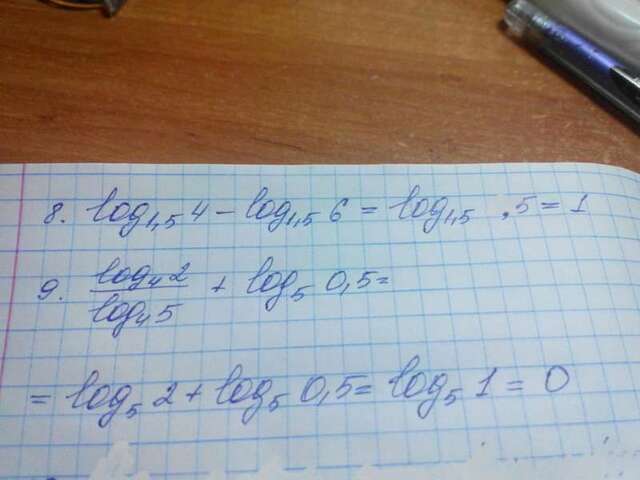 8. log₁,₅ 4 − log₁,₅ 6 = log₁,₅ ,5 = 1
9. log₄ 2 / log₄ 5 + log₅ 0,5 =
= log₅ 2 + log₅ 0,5 = log₅ 1 = 0